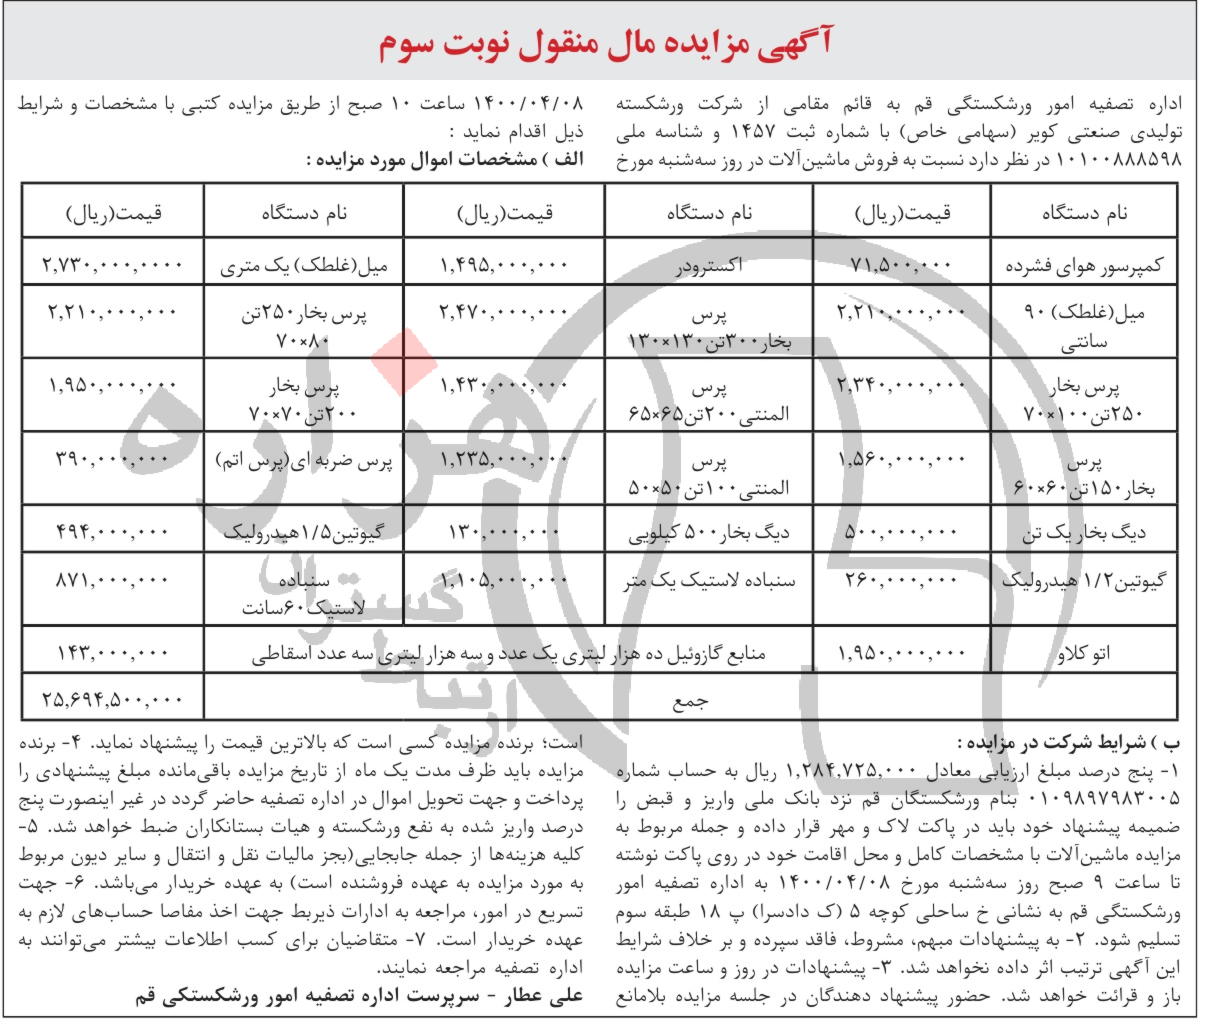 آگهی مزایده مال منقول نوبت سوم
اداره تصفیه امور ورشکستگی قم به قائم مقامی از شرکت ورشکسته
تولیدی صنعتی کویر (سهامی خاص) با شماره ثبت ۱۴۵۷ و شناسه ملی
۱۰۱۰۰۸۸۸۵۹۸ در نظر دارد نسبت به فروش ماشین‌آلات در روز سه‌شنبه مورخ
۱۴۰۰/۰۴/۰۸ ساعت ۱۰ صبح از طریق مزایده کتبی با مشخصات و شرایط
ذیل اقدام نماید :
الف ) مشخصات اموال مورد مزایده :
نام دستگاه قیمت(ریال) نام دستگاه قیمت(ریال) نام دستگاه قیمت(ریال)
کمپرسور هوای فشرده ۷۱,۵۰۰,۰۰۰ اکسترودر ۱,۴۹۵,۰۰۰,۰۰۰ میل(غلطک) یک متری ۲,۷۳۰,۰۰۰,۰۰۰۰
میل(غلطک) ۹۰ ۲,۲۱۰,۰۰۰,۰۰۰ پرس ۲,۴۷۰,۰۰۰,۰۰۰ پرس بخار۲۵۰تن ۲,۲۱۰,۰۰۰,۰۰۰
سانتی بخار۳۰۰تن۱۳۰×۱۳۰ ۷۰×۸۰
پرس بخار ۲,۳۴۰,۰۰۰,۰۰۰ پرس ۱,۴۳۰,۰۰۰,۰۰۰ پرس بخار ۱,۹۵۰,۰۰۰,۰۰۰
۲۵۰تن۱۰۰×۷۰ المنتی۲۰۰تن۶۵×۶۵ ۲۰۰تن۷۰×۷۰
پرس ۱,۵۶۰,۰۰۰,۰۰۰ پرس ۱,۲۳۵,۰۰۰,۰۰۰ پرس ضربه ای(پرس اتم) ۳۹۰,۰۰۰,۰۰۰
بخار۱۵۰تن۶۰×۶۰ المنتی۱۰۰تن۵۰×۵۰
دیگ بخار یک تن ۵۰۰,۰۰۰,۰۰۰ دیگ بخار۵۰۰ کیلویی ۱۳۰,۰۰۰,۰۰۰ گیوتین۱/۵هیدرولیک ۴۹۴,۰۰۰,۰۰۰
گیوتین۱/۲ هیدرولیک ۲۶۰,۰۰۰,۰۰۰ سنباده لاستیک یک متر ۱,۱۰۵,۰۰۰,۰۰۰ سنباده ۸۷۱,۰۰۰,۰۰۰
لاستیک۶۰سانت
اتو کلاو ۱,۹۵۰,۰۰۰,۰۰۰ منابع گازوئیل ده هزار لیتری یک عدد و سه هزار لیتری سه عدد اسقاطی ۱۴۳,۰۰۰,۰۰۰
جمع ۲۵,۶۹۴,۵۰۰,۰۰۰
ب ) شرایط شرکت در مزایده :
۱- پنج درصد مبلغ ارزیابی معادل ۱,۲۸۴,۷۲۵,۰۰۰ ریال به حساب شماره
۰۱۰۹۸۹۷۹۸۳۰۰۵ بنام ورشکستگان قم نزد بانک ملی واریز و قبض را
ضمیمه پیشنهاد خود باید در پاکت لاک و مهر قرار داده و جمله مربوط به
مزایده ماشین‌آلات با مشخصات کامل و محل اقامت خود در روی پاکت نوشته
تا ساعت ۹ صبح روز سه‌شنبه مورخ ۱۴۰۰/۰۴/۰۸ به اداره تصفیه امور
ورشکستگی قم به نشانی خ ساحلی کوچه ۵ (ک دادسرا) پ ۱۸ طبقه سوم
تسلیم شود. ۲- به پیشنهادات مبهم، مشروط، فاقد سپرده و بر خلاف شرایط
این آگهی ترتیب اثر داده نخواهد شد. ۳- پیشنهادات در روز و ساعت مزایده
باز و قرائت خواهد شد. حضور پیشنهاد دهندگان در جلسه مزایده بلامانع
است؛ برنده مزایده کسی است که بالاترین قیمت را پیشنهاد نماید. ۴- برنده
مزایده باید ظرف مدت یک ماه از تاریخ مزایده باقی‌مانده مبلغ پیشنهادی را
پرداخت و جهت تحویل اموال در اداره تصفیه حاضر گردد در غیر اینصورت پنج
درصد واریز شده به نفع ورشکسته و هیات بستانکاران ضبط خواهد شد. ۵-
کلیه هزینه‌ها از جمله جابجایی(بجز مالیات نقل و انتقال و سایر دیون مربوط
به مورد مزایده به عهده فروشنده است) به عهده خریدار می‌باشد. ۶- جهت
تسریع در امور، مراجعه به ادارات ذیربط جهت اخذ مفاصا حساب‌های لازم به
عهده خریدار است. ۷- متقاضیان برای کسب اطلاعات بیشتر می‌توانند به
اداره تصفیه مراجعه نمایند.
علی عطار - سرپرست اداره تصفیه امور ورشکستکی قم
هزاره
ارتباط گستران